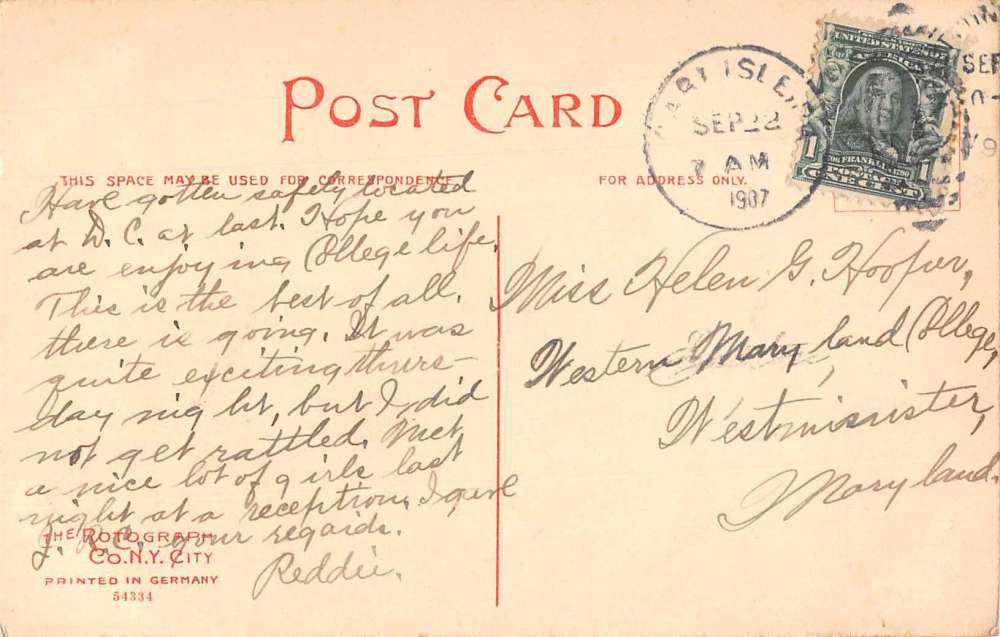 POST CARD
THIS SPACE MAY BE USED FOR CORRESPONDENCE
FOR ADDRESS ONLY.
CARLISLE,
SEP 22
7 AM
1907
UNITED STATES OF
AMERICA
1706 FRANKLIN 1790
POSTAGE
1 1
ONE CENT
SEP
Have gotten safely located
at D. C. at last. Hope you
are enjoying College life.
This is the best of all,
there is going. It was
quite exciting thurs-
day night, but I did
not get rattled. Met
a nice lot of girls last
night at a reception. I gave
J. R. C. your regards.
Reddie.
Miss Helen G. Hooper,
Western Mary land College,
Westminister,
Maryland.
THE ROTOGRAPH
CO. N.Y. CITY
PRINTED IN GERMANY
54334